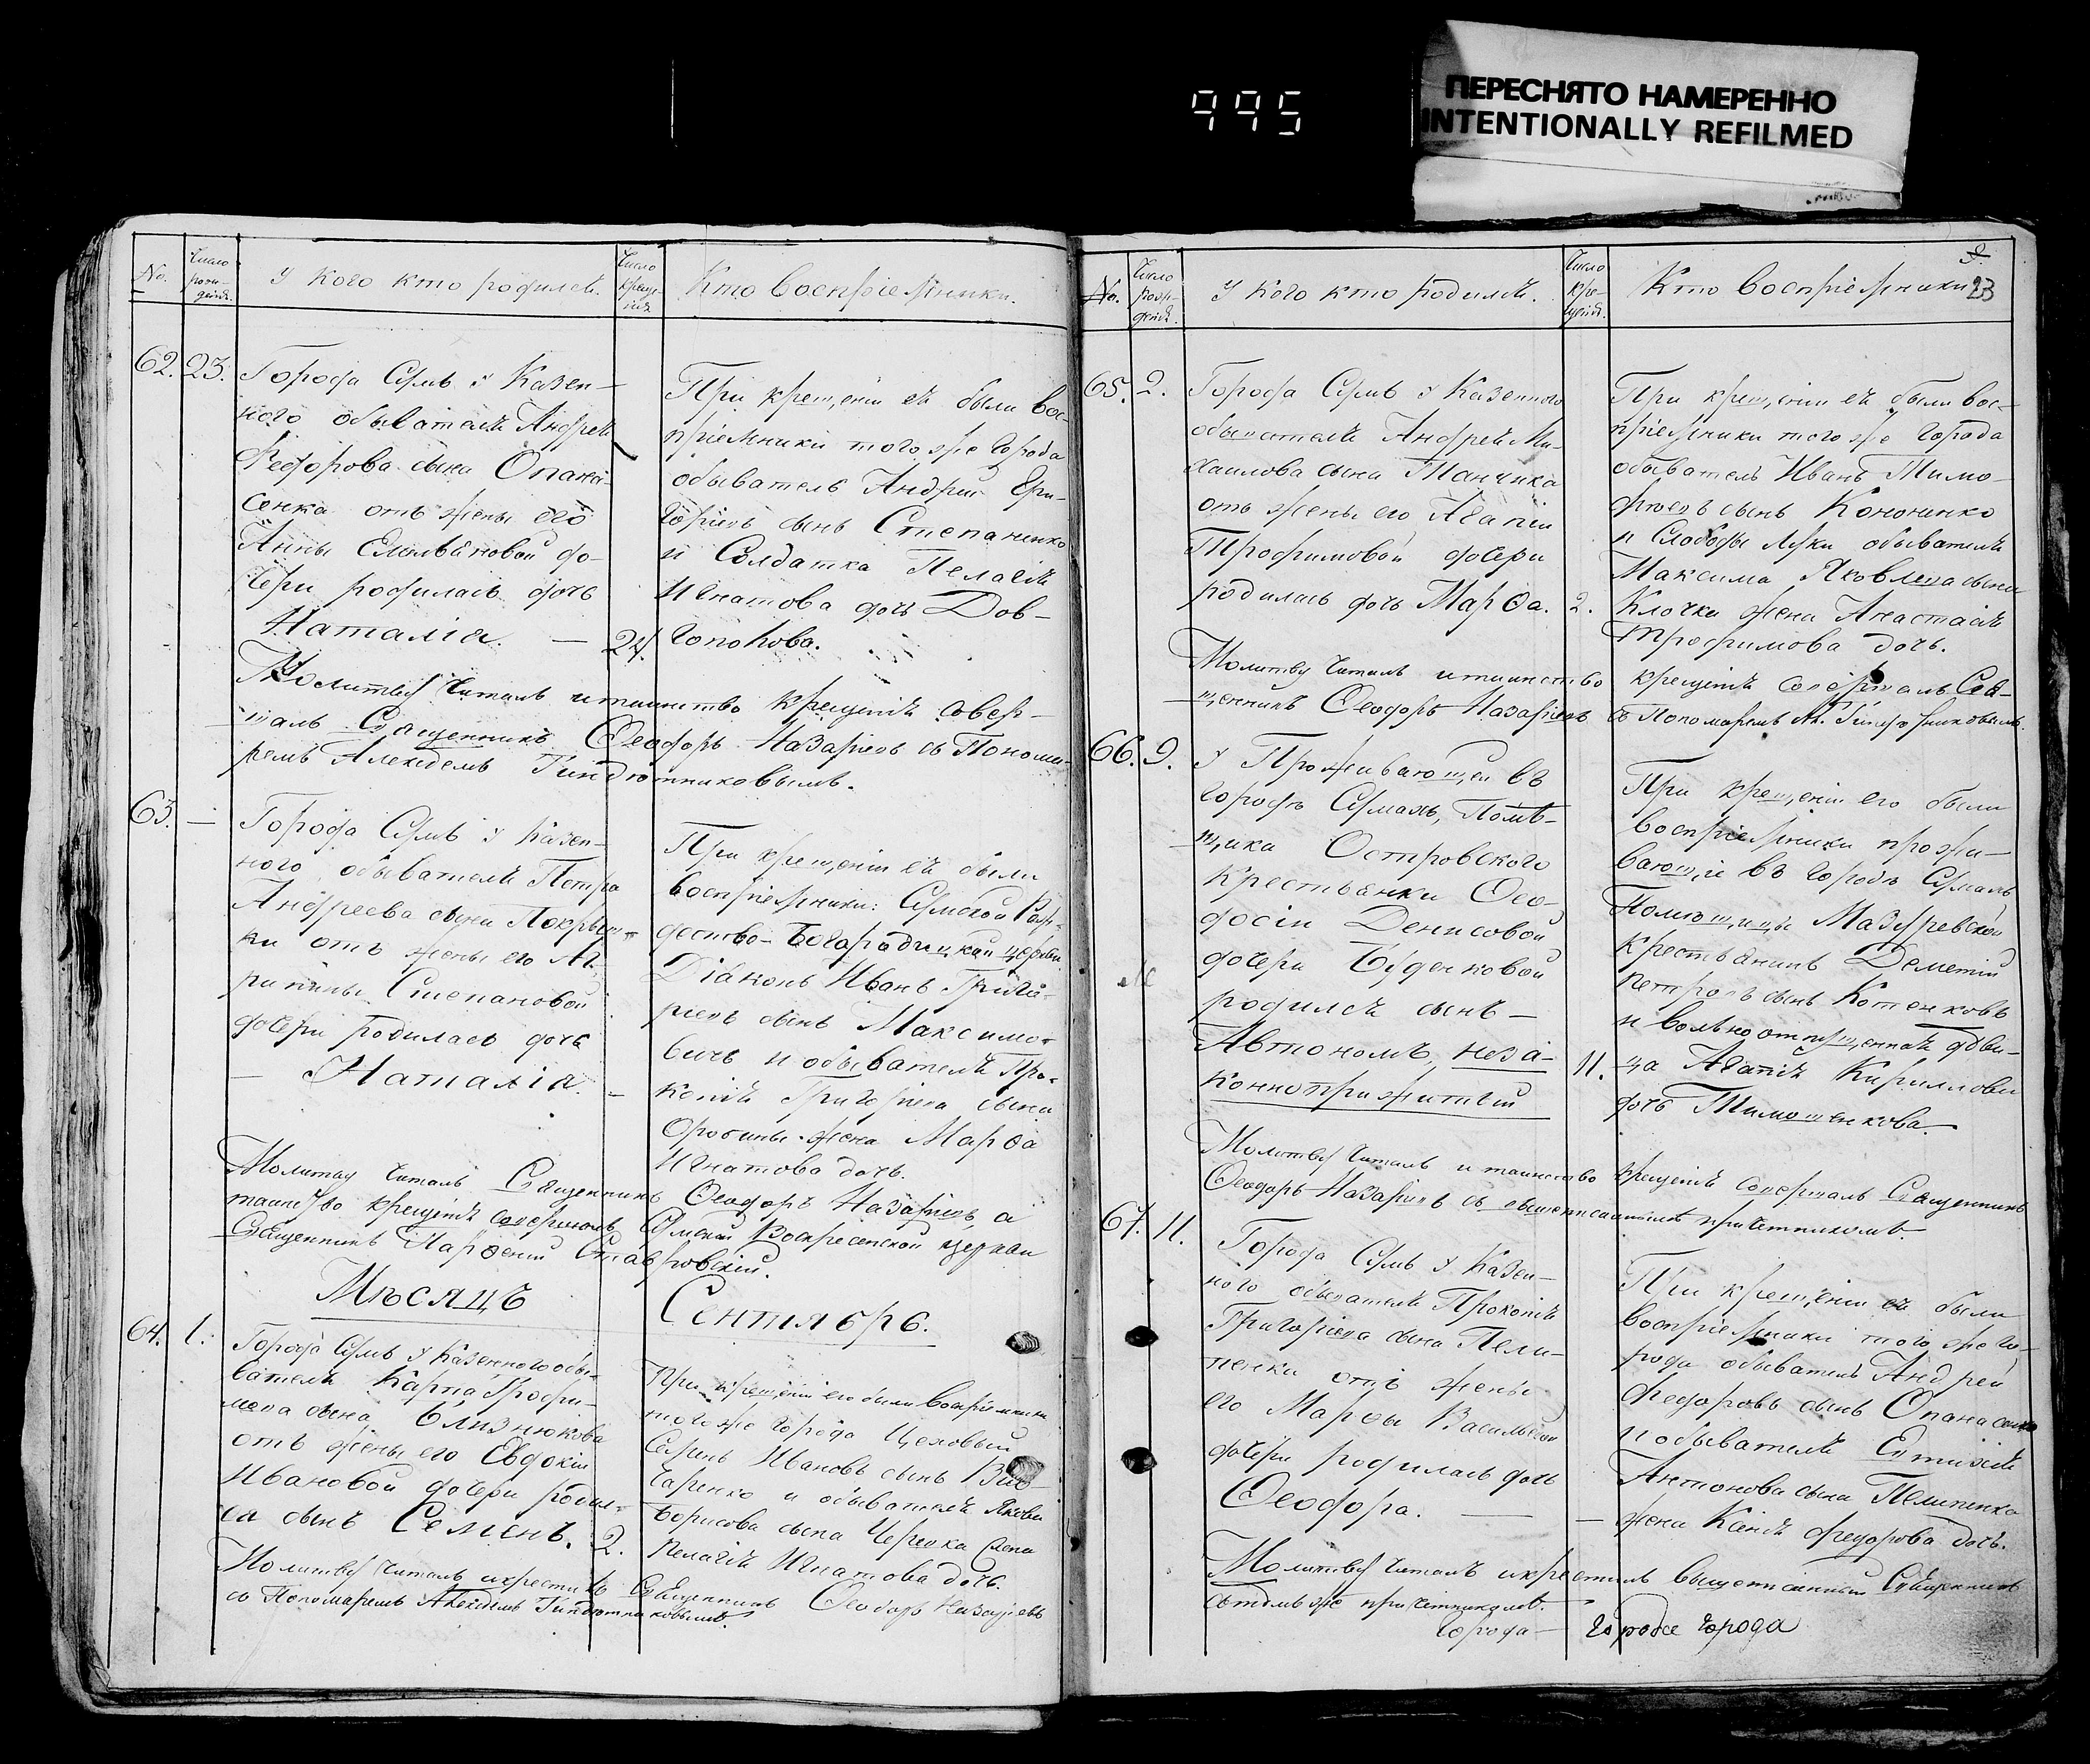 995
ПЕРЕСНЯТО НАМЕРЕННО
INTENTIONALLY REFILMED
No.
Число рожденія.
У кого кто родился.
Число крещенія
Кто воспріемники.
62. 23.
Города Сумъ у Казен-
ного обывателя Андрея
Федорова сына Опана-
сенка отъ жены его
Анны Емельяновой до-
чери родилась дочь
Наталія. — 24.
При крещеніи ея были вос-
пріемники того же города
обыватель Андрей Гри-
горіевъ сынъ Степаненко
и Солдатка Пелагія
Игнатова дочь Дов-
гополова.
Молитву читалъ и таинство крещенія совер-
шалъ Священникъ Ѳеодоръ Назаріевъ съ Понома-
ремъ Алексѣемъ
63. —
Города Сумъ у Казен-
ного обывателя Петра
Андреева сына
ки отъ жены его Аг-
рипины Степановой
дочери родилась дочь
— Наталія. —
При крещеніи ея были
воспріемники: Сумской Рож-
дество-Богородицкой церкви
Діаконъ Иванъ Григо-
ріевъ сынъ Максимо-
вичъ и обывателя Про-
копія Григоріева сына
жена Марѳа
Игнатова дочь.
Молитву читалъ Священникъ Ѳеодоръ Назаріевъ, а
таинство крещенія совершилъ Сумской Воскресенской церкви
Священникъ Парѳеній
Мѣсяцъ Сентябрь.
64. 1.
Города Сумъ у Казенного обы-
вателя Карпа Трофи-
мова сына Близнюкова
отъ жены его Евдокіи
Ивановой дочери родил-
ся сынъ Семенъ. 2.
При крещеніи его были воспріемники
того же города Цеховый
Ивановъ сынъ
и обывателя Якова
Борисова сына жена
Пелагія Игнатова дочь.
Молитву читалъ и крестилъ Священникъ Ѳеодоръ Назаріевъ
съ Пономаремъ
No.
Число рожденія.
У кого кто родился.
Число крещенія.
Кто воспріемники
23
65. 2.
Города Сумъ у Казенного
обывателя Андрея Ми-
хаилова сына Танчика
отъ жены его Агапіи
Трофимовой дочери
родилась дочь Марѳа. 2.
При крещеніи ея были вос-
пріемники того же города
обыватель Иванъ Тимо-
феевъ сынъ Кононенко
и Слободы Луки обывателя
Максима Яковлева сына
Клочка жена Анастасія
Трофимова дочь.
Молитву читалъ и таинство крещенія совершалъ Свя-
щенникъ Ѳеодоръ Назаріевъ съ Пономаремъ
66. 9.
У Проживающей въ
городѣ Сумахъ, Помѣ-
щика Островского
крестьянки Ѳео-
досіи Денисовой
дочери Буденковой
родился сынъ —
Автономъ, неза-
конноприжитый 11.
При крещеніи его были
воспріемники прожи-
вающіе въ городѣ Сумахъ
Помѣщицы Мазуревской
крестьянинъ Деметій
Петровъ сынъ Котенковъ
и вольноотпущенная дѣви-
ца Агапія Кириллова
дочь Тимошенкова.
Молитву читалъ и таинство крещенія совершалъ Священникъ
Ѳеодоръ Назаріевъ съ вышеписаннымъ причетникомъ.
67. 11.
Города Сумъ у Казен-
ного обывателя Прокопія
Григоріева сына Пели-
пенка отъ жены
его Марѳы Васильевой
дочери родилась дочь
Ѳеодора. — —
При крещеніи ея были
воспріемники того же го-
рода обыватель Андрей
Федоровъ сынъ Опанасенко
и обывателя Евтихія
Антонова сына Пелипенка
жена Ксенія Федорова дочь.
Молитву читалъ и крестилъ вышеписанный Священникъ
съ тѣмъ же причетникомъ.
Города — Города